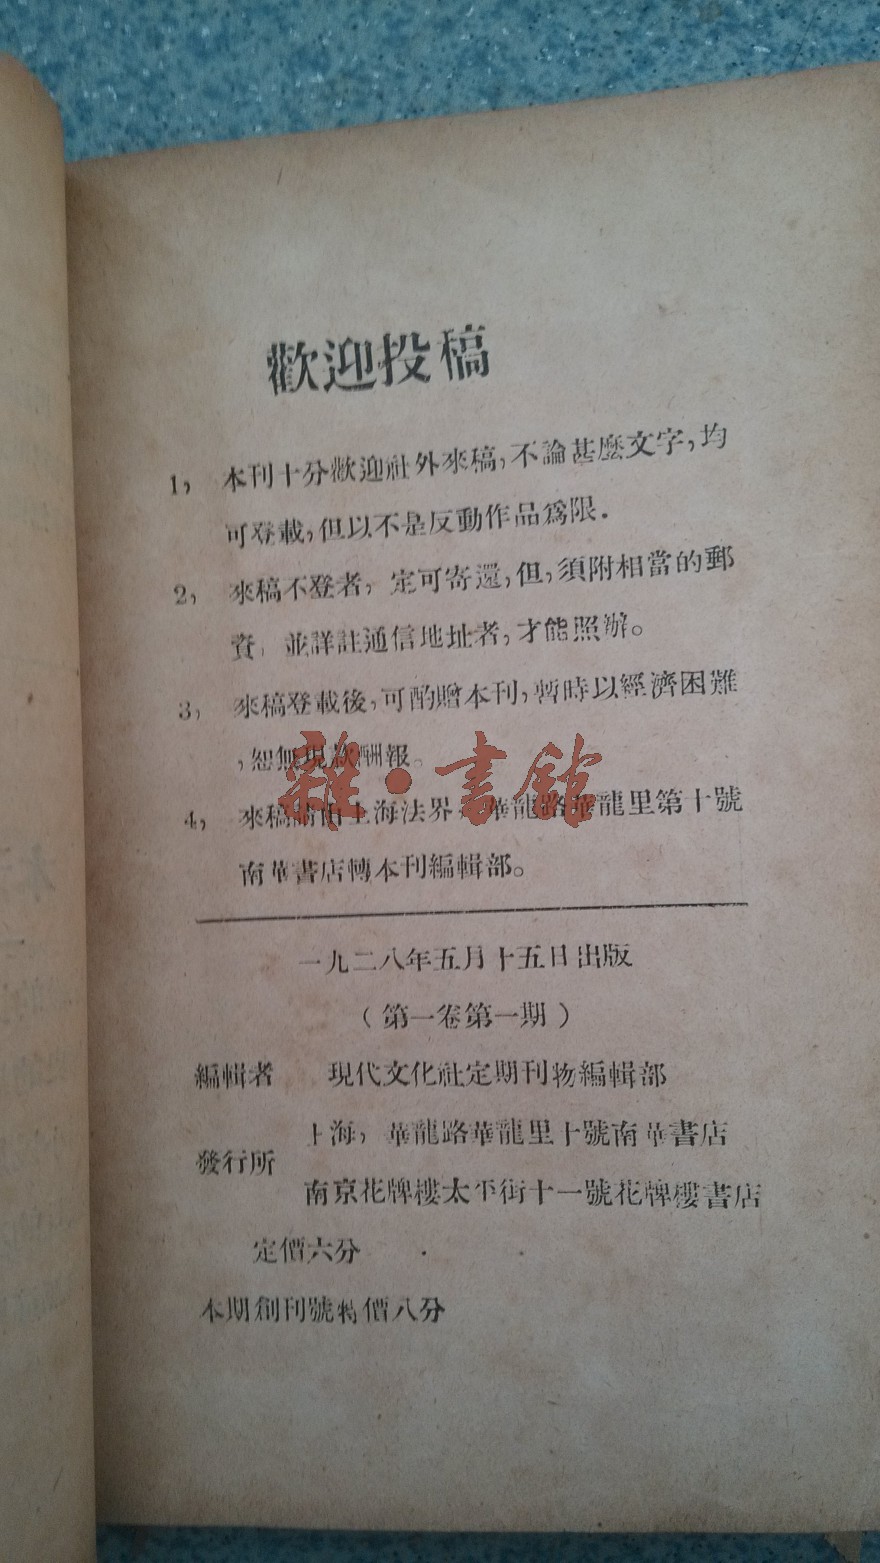 歡迎投稿
1，本刊十分歡迎社外來稿，不論甚麽文字，均
可登載，但以不是反動作品爲限．
2，來稿不登者，定可寄還，但，須附相當的郵
資，並詳註通信地址者，才能照辦。
3，來稿登載後，可酌贈本刊，暫時以經濟困難
，恕無現款酬報。
4，來稿請由上海法界，華龍路華龍里第十號
南華書店轉本刊編輯部。
雜·書館
一九二八年五月十五日出版
（第一卷第一期）
編輯者 現代文化社定期刊物編輯部
發行所 上海，華龍路華龍里十號南華書店
南京花牌樓太平街十一號花牌樓書店
定價六分
本期創刊號特價八分